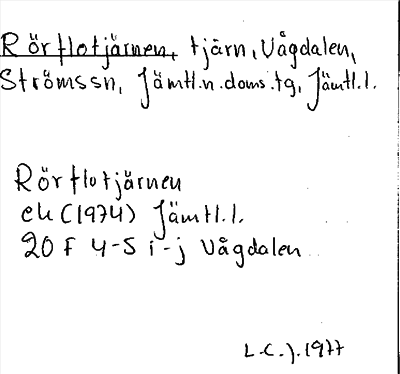 Rörflotjärnen, tjärn, Vågdalen,
Strömssn, Jämtl.n.doms.tg, Jämtl.l.
Rörflotjärnen
ek (1974) Jämtl.l.
20 F 4-5 i-j Vågdalen
L.C.J. 1977